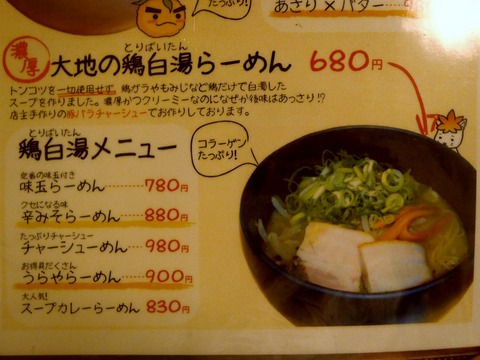 たっぷり!
あさり×バター
濃厚
とりぱいたん
大地の鶏白湯らーめん 680円
トンコツを一切使用せず、鶏ガラやもみじなど鶏だけで白濁した
スープを作りました。濃厚かつクリーミーなのになぜか後味はあっさり!?
店主手作りの豚バラチャーシューでお作りしております。
とりぱいたん
鶏白湯メニュー
コラーゲン
たっぷり!
定番の味玉付き
味玉らーめん……780円
クセになる味
辛みそらーめん……880円
たっぷりチャーシュー
チャーシューめん……980円
お得具だくさん
うらやらーめん……900円
大人気!
スープカレーらーめん 830円